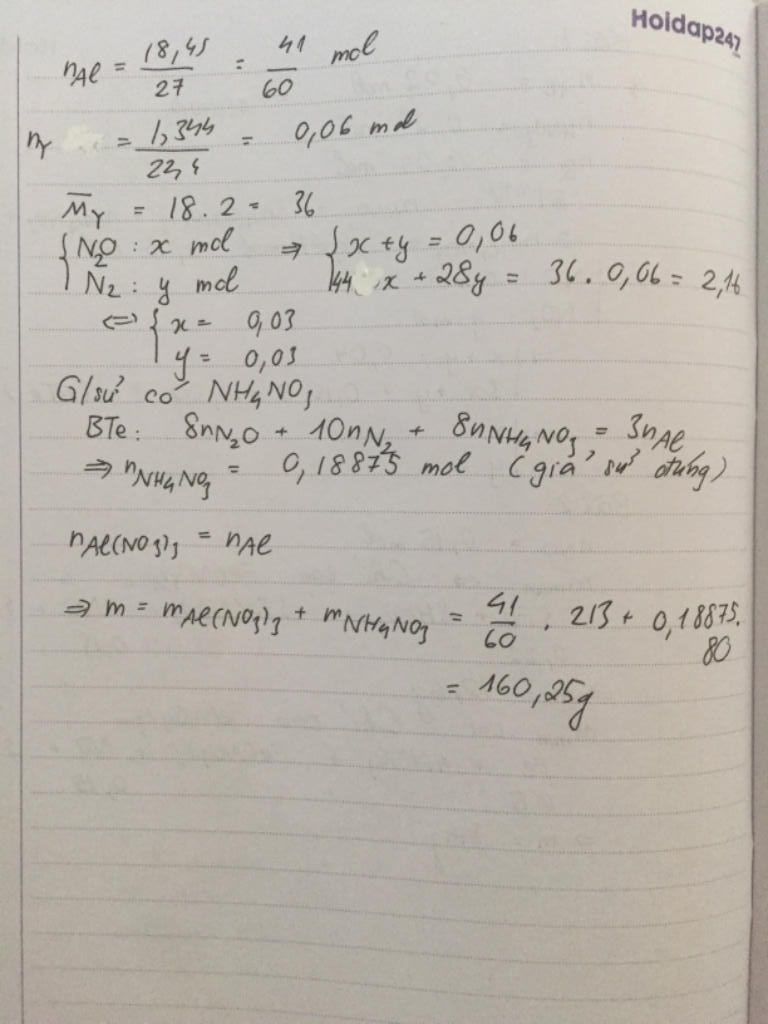 Hoidap247
nAl = 18,45/27 = 41/60 mol
nY = 1,344/22,4 = 0,06 mol
M̅Y = 18.2 = 36
{N2O : x mol ⇒ {x + y = 0,06
N2 : y mol 44x + 28y = 36.0,06 = 2,16
⇔ {x = 0,03
y = 0,03
G/sử có NH4NO3
BTe: 8nN2O + 10nN2 + 8nNH4NO3 = 3nAl
⇒ nNH4NO3 = 0,18875 mol (giả sử đúng)
nAl(NO3)3 = nAl
⇒ m = mAl(NO3)3 + mNH4NO3 = 41/60 . 213 + 0,18875.
80
= 160,25g